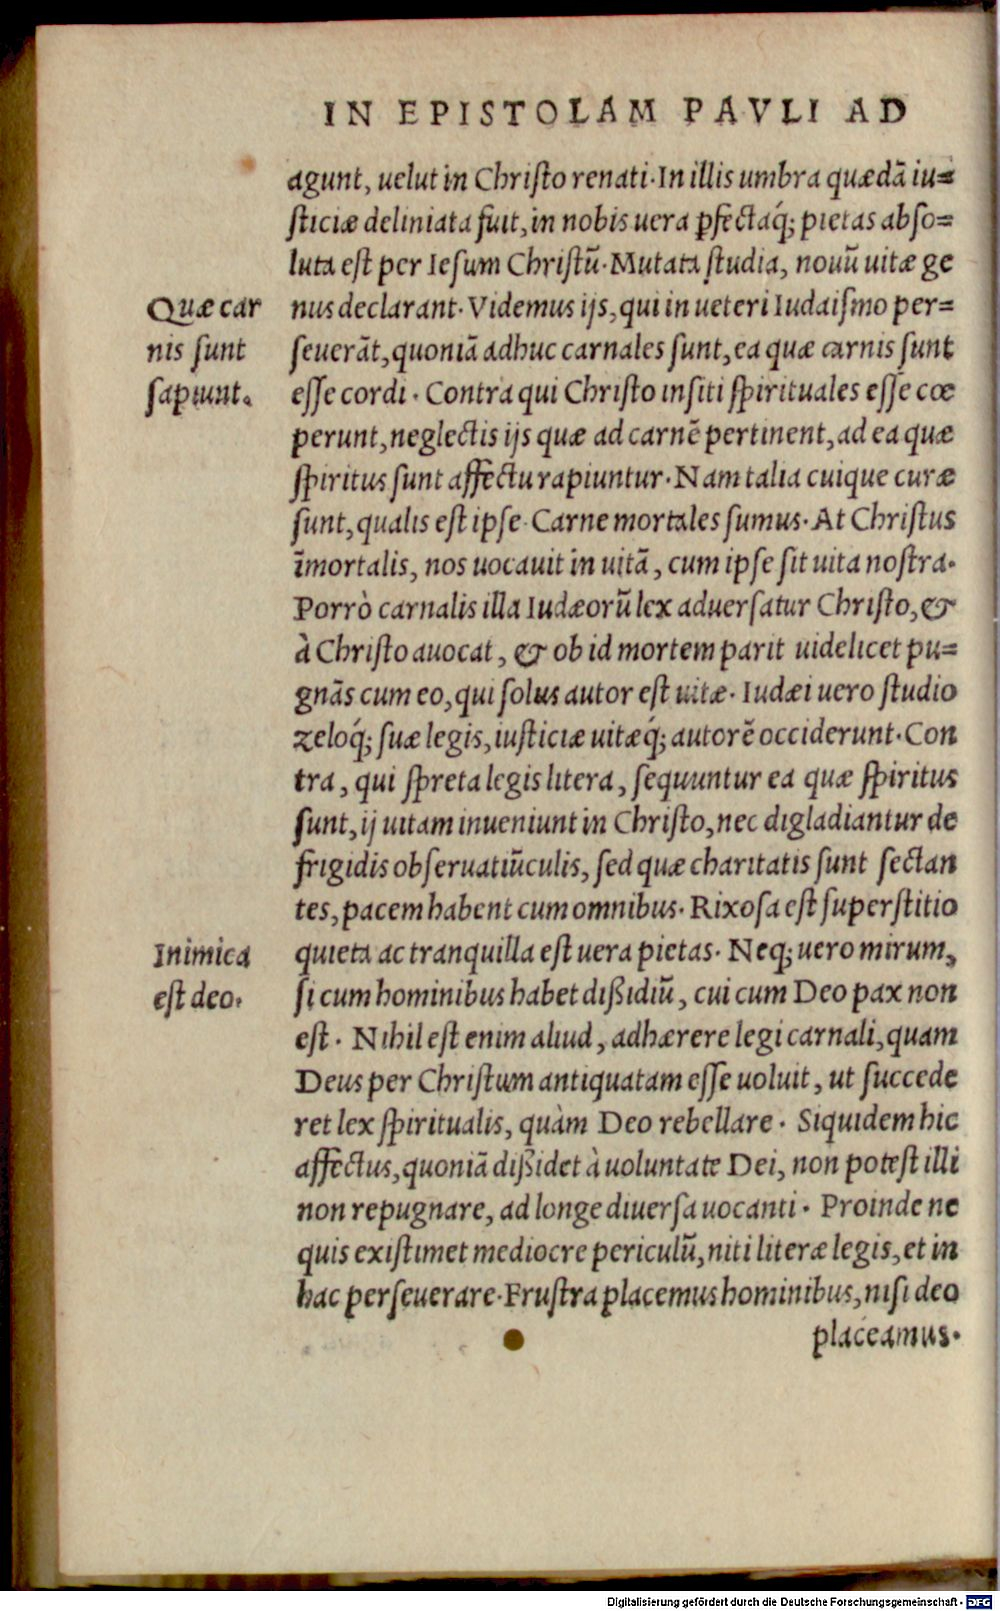 IN EPISTOLAM PAVLI AD
agunt, uelut in Christo renati. In illis umbra quædã iu=
sticiæ deliniata fuit, in nobis uera pfectaq́; pietas abso=
luta est per Iesum Christũ. Mutata studia, nouũ uitæ ge
nus declarant. Videmus ijs, qui in ueteri Iudaismo per=
seuerãt, quoniã adhuc carnales sunt, ea quæ carnis sunt
esse cordi. Contra qui Christo insiti spirituales esse cœ
perunt, neglectis ijs quæ ad carnẽ pertinent, ad ea quæ
spiritus sunt affectu rapiuntur. Nam talia cuique curæ
sunt, qualis est ipse. Carne mortales sumus. At Christus
ĩmortalis, nos uocauit in uitã, cum ipse sit uita nostra.
Porrò carnalis illa Iudæorũ lex aduersatur Christo, &
à Christo auocat, & ob id mortem parit uidelicet pu=
gnãs cum eo, qui solus autor est uitæ. Iudæi uero studio
zeloq́; suæ legis, iusticiæ uitæq́; autorẽ occiderunt. Con
tra, qui spreta legis litera, sequuntur ea quæ spiritus
sunt, ij uitam inueniunt in Christo, nec digladiantur de
frigidis obseruatiũculis, sed quæ charitatis sunt sectan
tes, pacem habent cum omnibus. Rixosa est superstitio
quieta ac tranquilla est uera pietas. Neq; uero mirum,
si cum hominibus habet dißidiũ, cui cum Deo pax non
est. Nihil est enim aliud, adhærere legi carnali, quam
Deus per Christum antiquatam esse uoluit, ut succede
ret lex spiritualis, quàm Deo rebellare. Siquidem hic
affectus, quoniã dißidet à uoluntate Dei, non potest illi
non repugnare, ad longe diuersa uocanti. Proinde ne
quis existimet mediocre periculũ, niti literæ legis, et in
hac perseuerare. Frustra placemus hominibus, nisi deo
placeamus.
Quæ car
nis sunt
sapiunt.
Inimica
est deo.
Digitalisierung gefördert durch die Deutsche Forschungsgemeinschaft - DFG